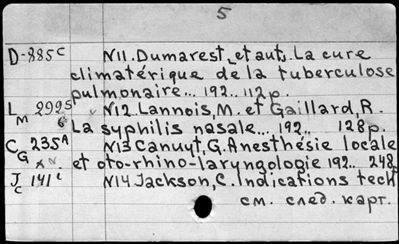 5
D-885c N11. Dumarest et aut. La cure
climatérique de la tuberculose
pulmonaire... 192.. 112 p.
L 2995 N12. Lannois, M. et Gaillard, R.
M 6 La syphilis nasale... 192.. 128 p.
C 235A N13 Canuyt, G. Anesthésie locale
G et oto-rhino-laryngologie 192.. 248
J 141 N14 Jackson, C. Indications tech
C см. след. карт.